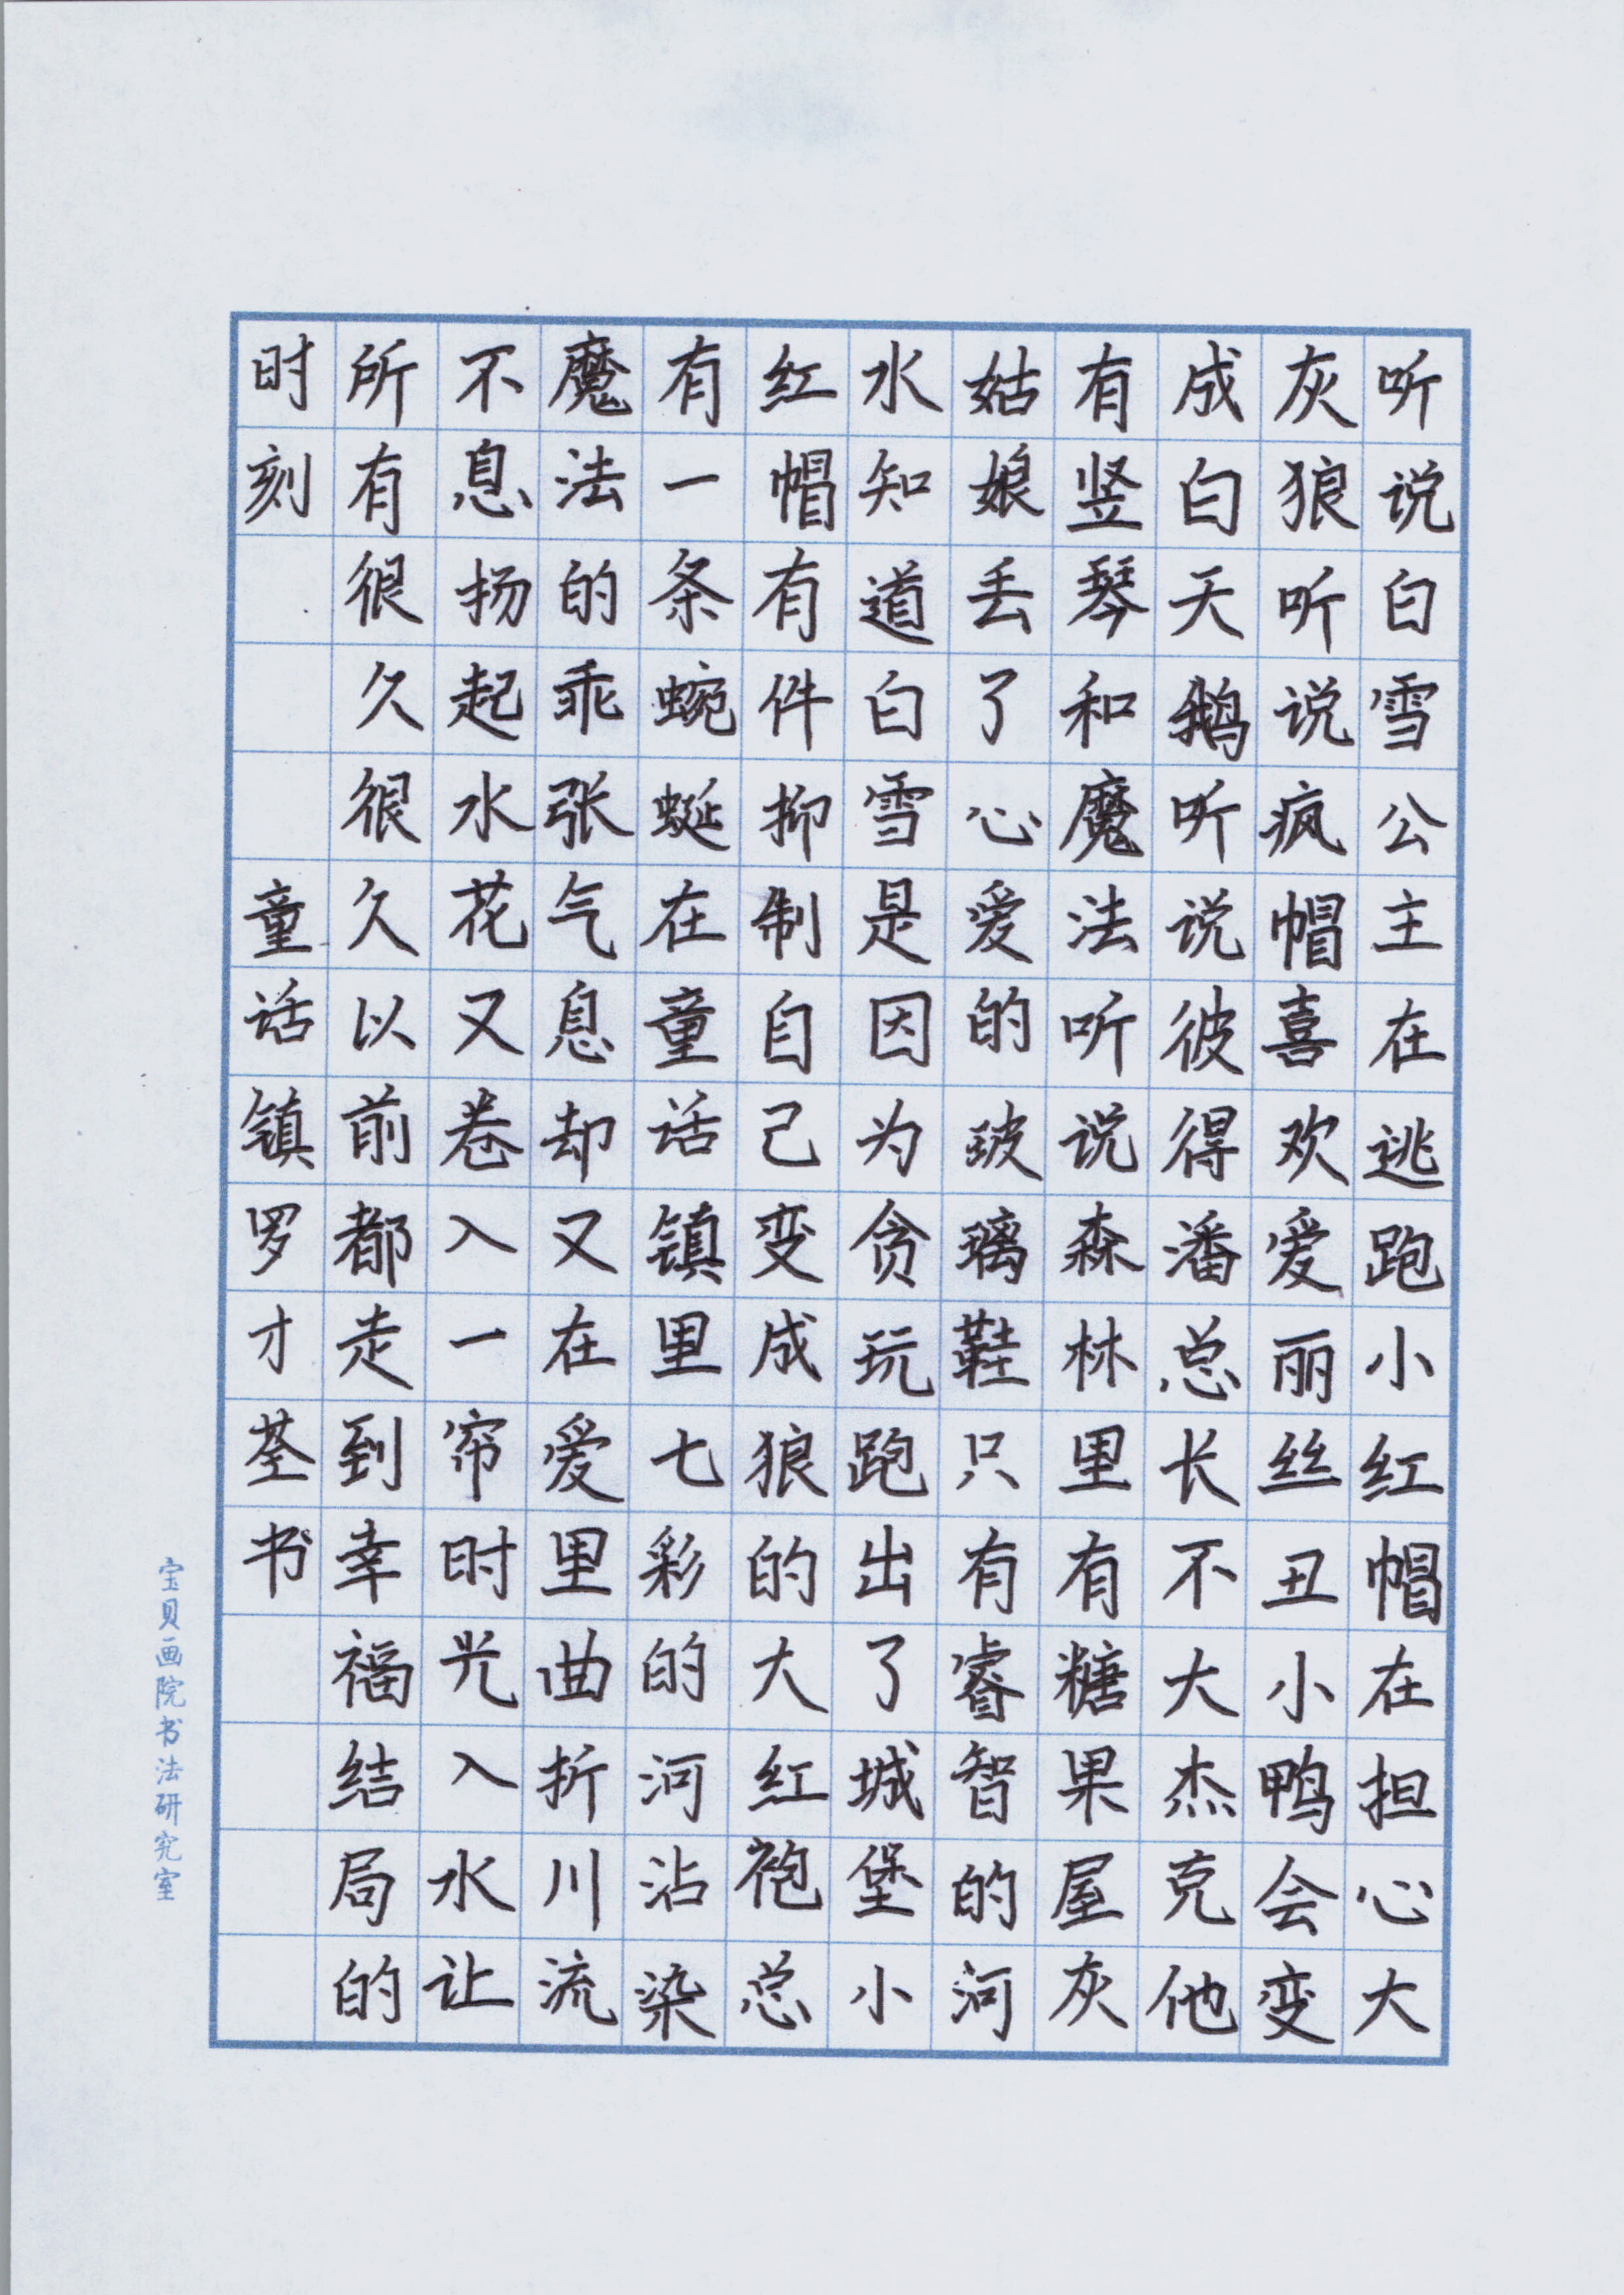 听说白雪公主在逃跑小红帽在担心大
灰狼听说疯帽喜欢爱丽丝丑小鸭会变
成白天鹅听说彼得潘总长不大杰克他
有竖琴和魔法听说森林里有糖果屋灰
姑娘丢了心爱的玻璃鞋只有睿智的河
水知道白雪是因为贪玩跑出了城堡小
红帽有件抑制自己变成狼的大红袍总
有一条蜿蜒在童话镇里七彩的河沾染
魔法的乖张气息却又在爱里曲折川流
不息扬起水花又卷入一帘时光入水让
所有很久很久以前都走到幸福结局的
时刻 童话镇罗才荃书
宝贝画院书法研究室